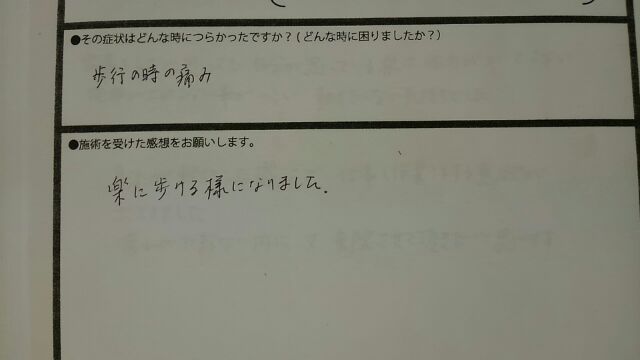 ●その症状はどんな時につらかったですか？(どんな時に困りましたか？)
歩行の時の痛み
●施術を受けた感想をお願いします。
楽に歩ける様になりました.